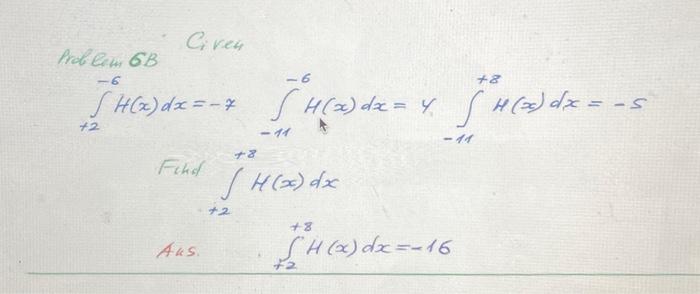 Given
Problem 6B
∫_{+2}^{-6} H(x)dx = -7 ∫_{-11}^{-6} H(x)dx = 4 ∫_{-11}^{+8} H(x)dx = -5
Find ∫_{+2}^{+8} H(x)dx
Ans. ∫_{+2}^{+8} H(x)dx = -16